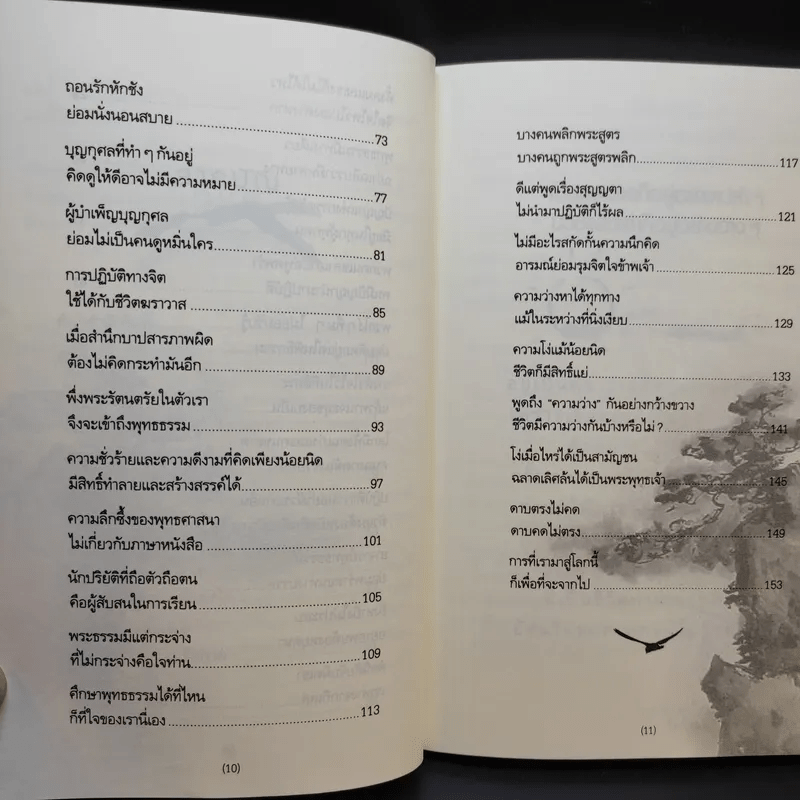 ถอนรักหักชัง
ย่อมนั่งนอนสบาย ........................................ 73
บุญกุศลที่ทำ ๆ กันอยู่
คิดดูให้ดีอาจไม่มีความหมาย ........................................ 77
ผู้บำเพ็ญบุญกุศล
ย่อมไม่เป็นคนดูหมิ่นใคร ........................................ 81
การปฏิบัติทางจิต
ใช้ได้กับชีวิตฆราวาส ........................................ 85
เมื่อสำนึกบาปสารภาพผิด
ต้องไม่คิดกระทำมันอีก ........................................ 89
พึ่งพระรัตนตรัยในตัวเรา
จึงจะเข้าถึงพุทธธรรม ........................................ 93
ความชั่วร้ายและความดีงามที่คิดเพียงน้อยนิด
มีสิทธิ์ทำลายและสร้างสรรค์ได้ ........................................ 97
ความลึกซึ้งของพุทธศาสนา
ไม่เกี่ยวกับภาษาหนังสือ ........................................ 101
นักปริยัติที่ถือตัวถือตน
คือผู้สับสนในการเรียน ........................................ 105
พระธรรมมีแต่กระจ่าง
ที่ไม่กระจ่างคือใจท่าน ........................................ 109
ศึกษาพุทธธรรมได้ที่ไหน
ก็ที่ใจของเรานี่เอง ........................................ 113
(10)
บางคนพลิกพระสูตร
บางคนถูกพระสูตรพลิก ........................................ 117
ดีแต่พูดเรื่องสุญญตา
ไม่นำมาปฏิบัติก็ไร้ผล ........................................ 121
ไม่มีอะไรสกัดกั้นความนึกคิด
อารมณ์ย่อมรุมจิตใจข้าพเจ้า ........................................ 125
ความว่างหาได้ทุกทาง
แม้ในระหว่างที่นิ่งเงียบ ........................................ 129
ความโง่แม้น้อยนิด
ชีวิตก็มีสิทธิ์แย่ ........................................ 133
พูดถึง "ความว่าง" กันอย่างกว้างขวาง
ชีวิตมีความว่างกันบ้างหรือไม่ ? ........................................ 141
โง่เมื่อไหร่ได้เป็นสามัญชน
ฉลาดเลิศล้นได้เป็นพระพุทธเจ้า ........................................ 145
ดาบตรงไม่คด
ดาบคดไม่ตรง ........................................ 149
การที่เรามาสู่โลกนี้
ก็เพื่อที่จะจากไป ........................................ 153
(11)